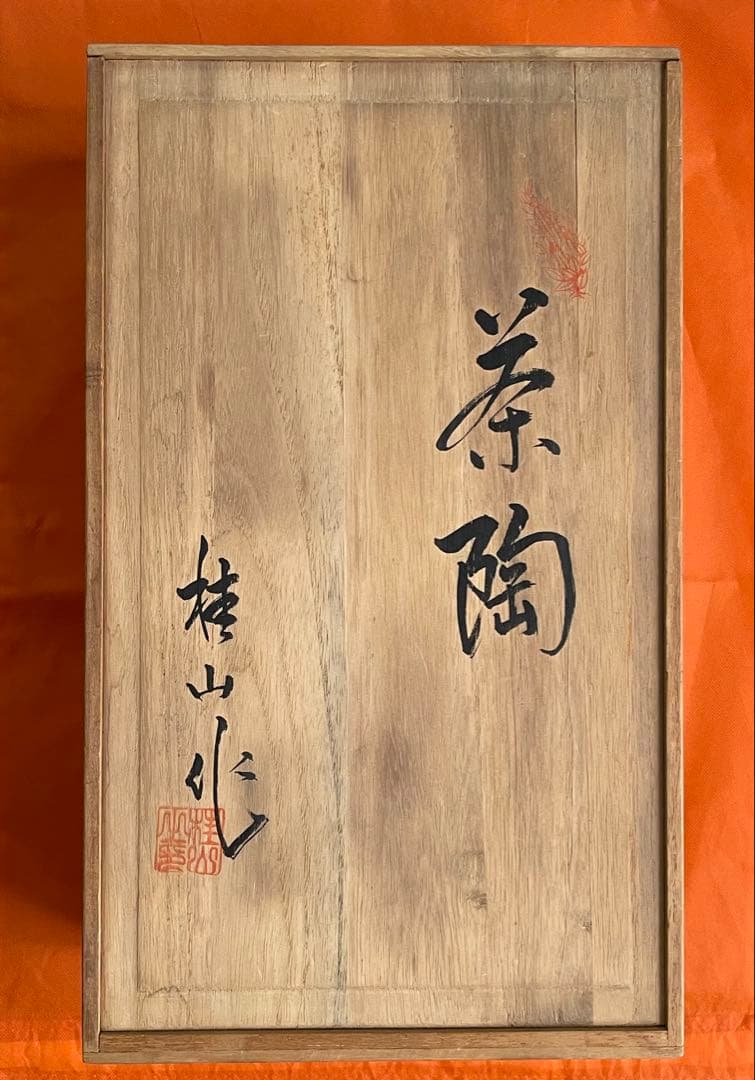 茶陶
桂山作